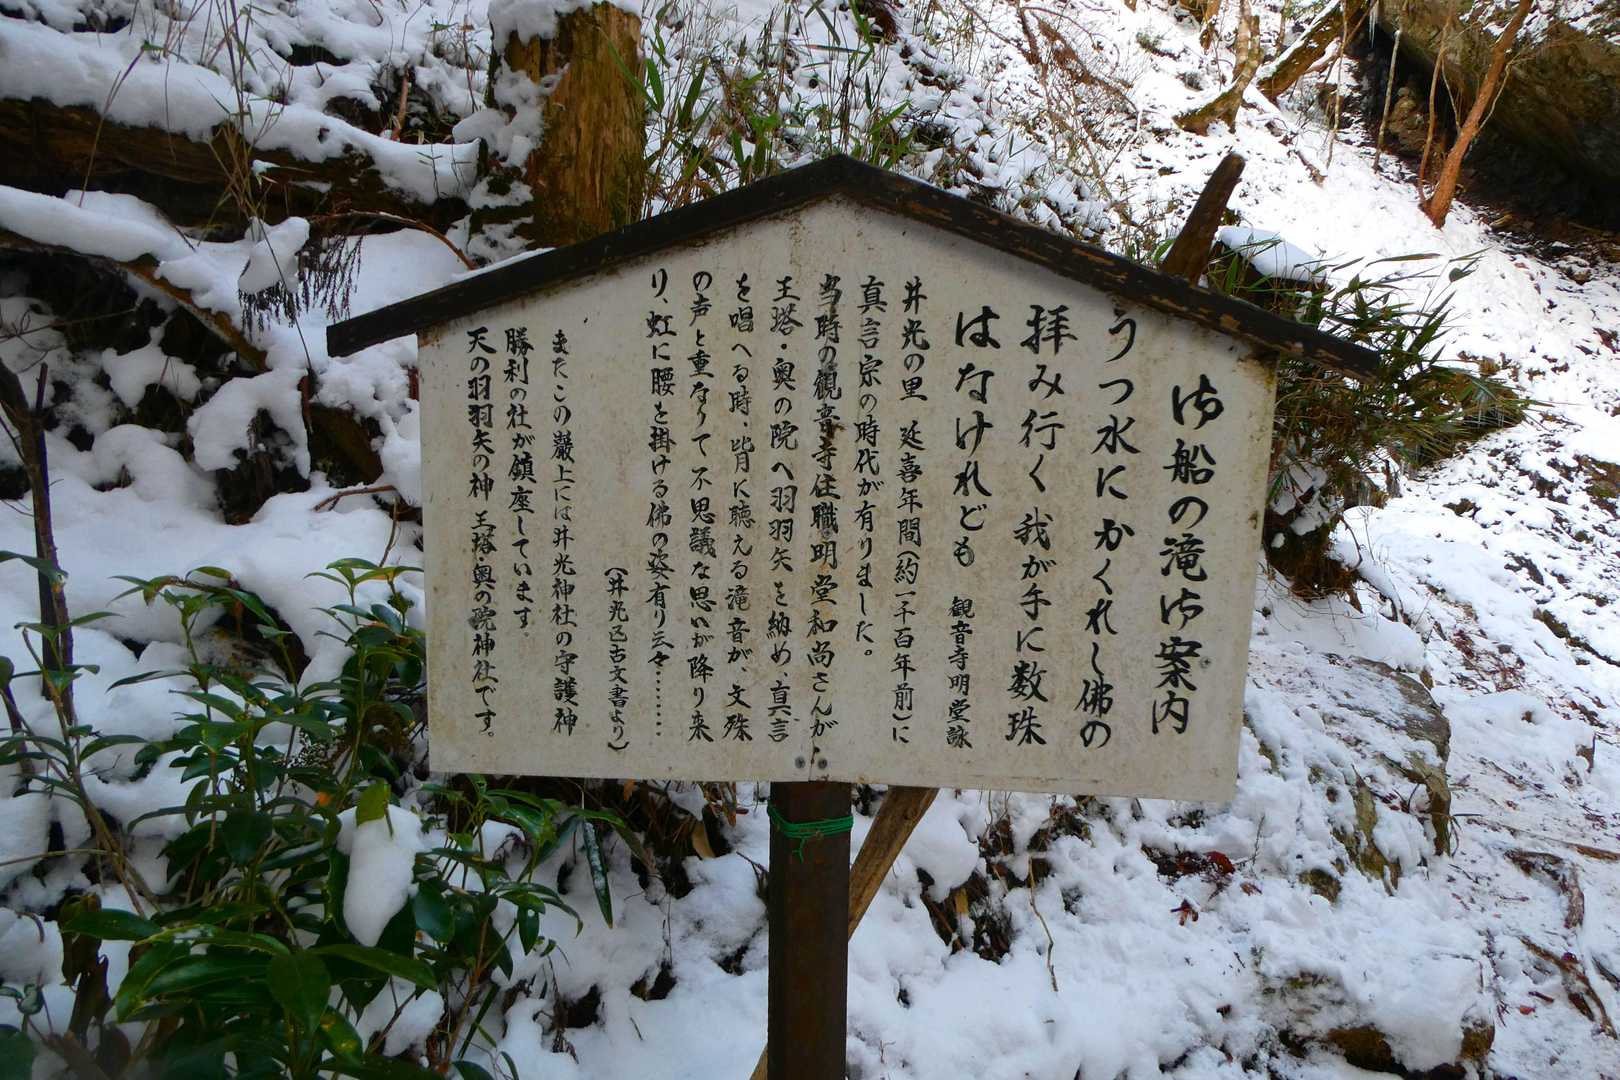 御船の滝御案内
うつ水にかくれし佛の
拝み行く我が手に数珠
はなけれども 観音寺明堂詠
井光の里 延喜年間(約一千百年前)に
真言宗の時代が有りました。
当時の観音寺住職明堂和尚さんが、
王塔・奥の院へ羽羽矢を納め、真言
を唱へる時、皆月に聴える滝音が、文殊
の声と重なりて不思議な思いが降り来
り、虹に腰を掛ける佛の姿有り云々………
(井光区古文書より)
またこの巌上には井光神社の守護神
勝利の社が鎮座しています。
天の羽羽矢の神 王塔奥の院神社です。